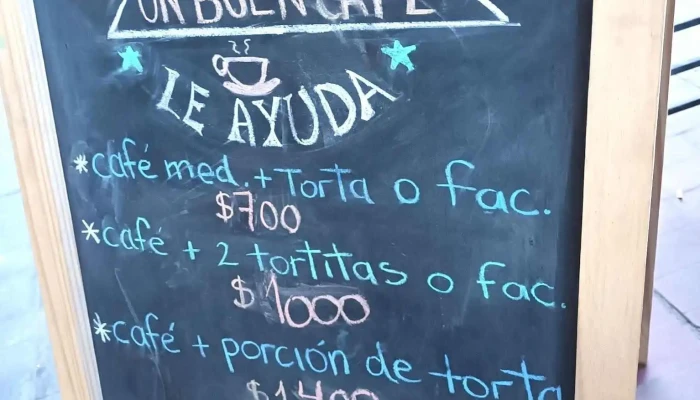 UN BUEN CAFE
LE AYUDA
*café med. + Torta o fac.
$700
*café + 2 tortitas o fac.
$1000
*café + porción de torta
$1400